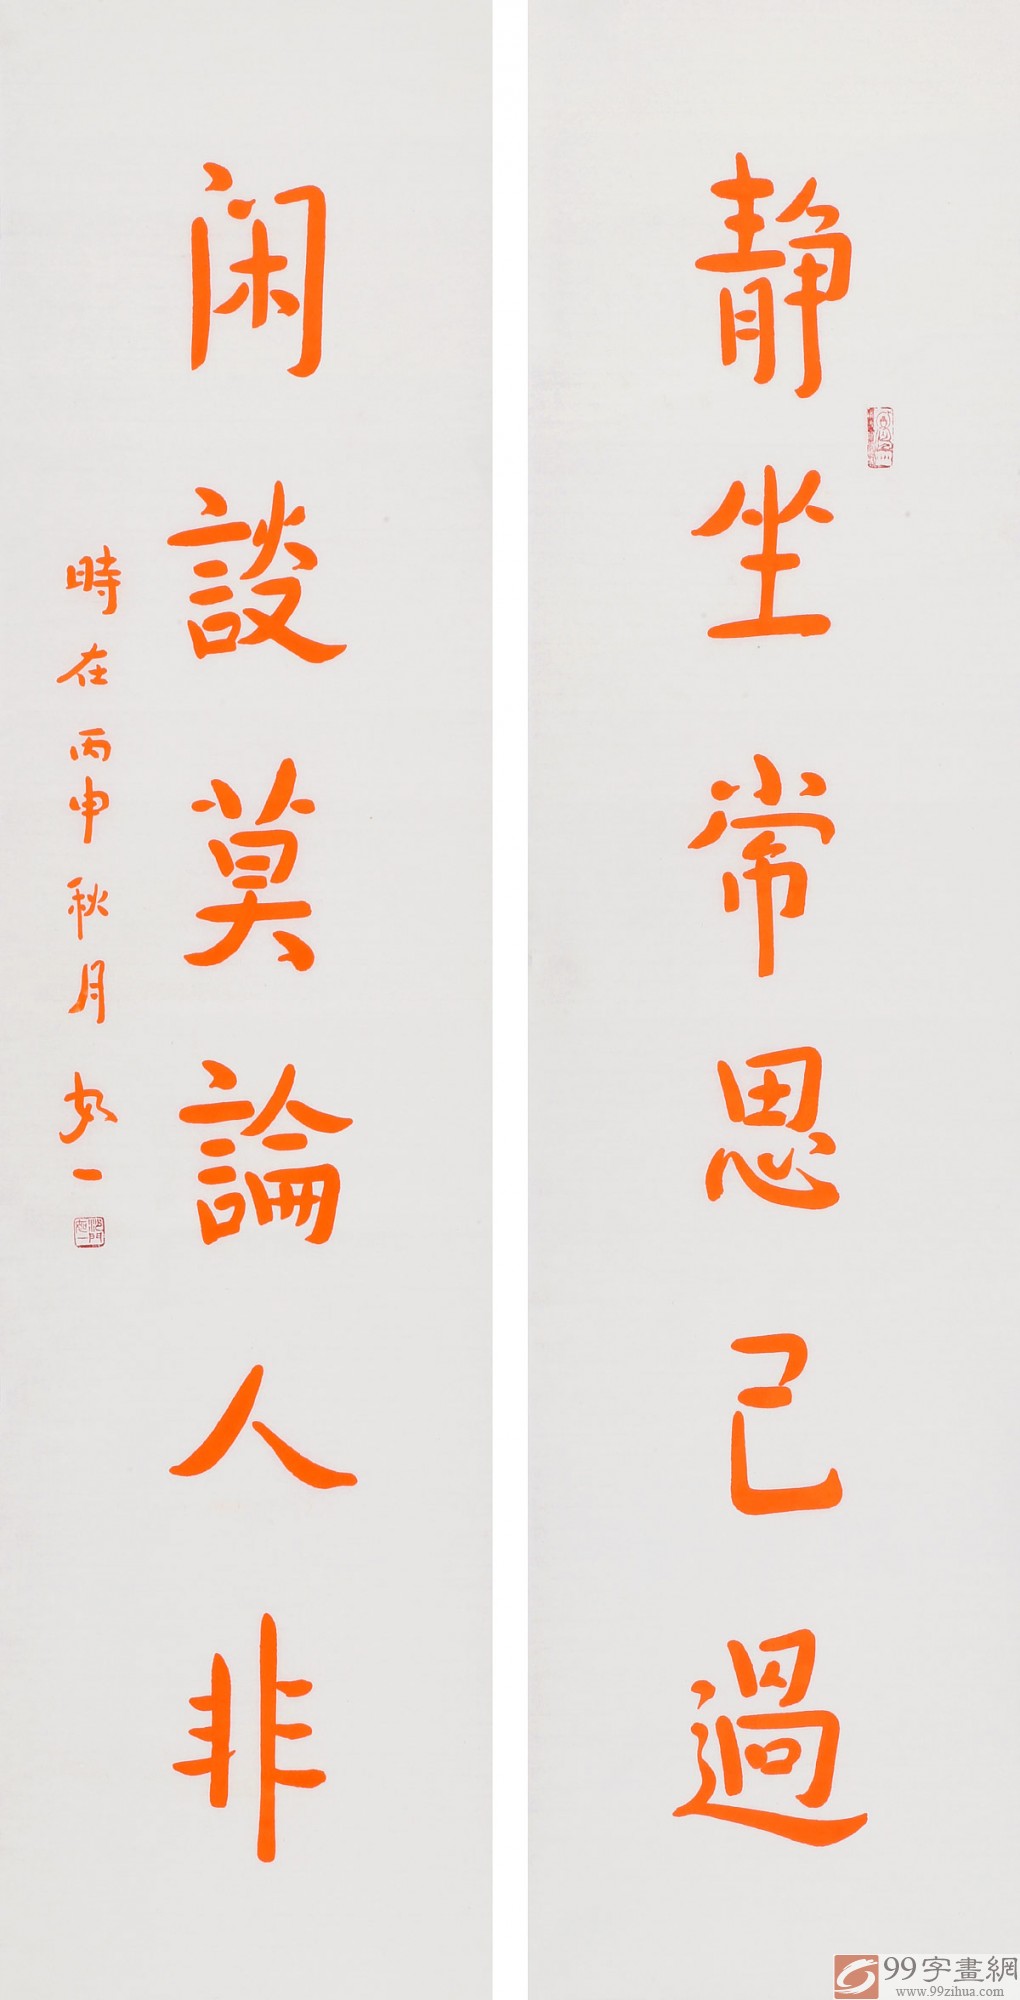 静坐常思己過
闲談莫論人非
時在丙申秋月如一
99字畫網
www.99zihua.com